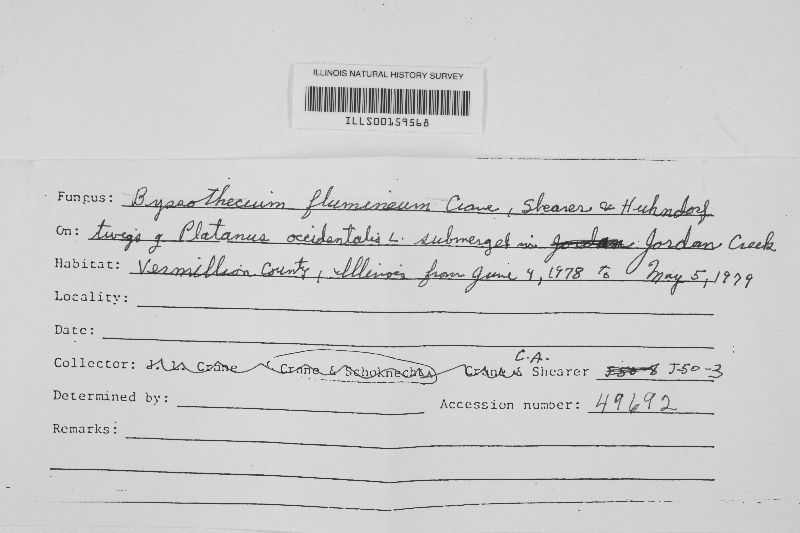 ILLINOIS NATURAL HISTORY SURVEY
ILLS00159568
Fungus: Byssothecium flumineum Crane, Shearer & Huhndorf
On: twigs of Platanus occidentalis L. submerged in Jordan Jordan Creek
Habitat: Vermillion County, Illinois from June 4, 1978 to May 5, 1979
Locality:
Date:
C.A.
Collector: J. L. Crane Crane & Schoknecht Crane & Shearer J-50-3
Determined by: Accession number: 49692
Remarks: